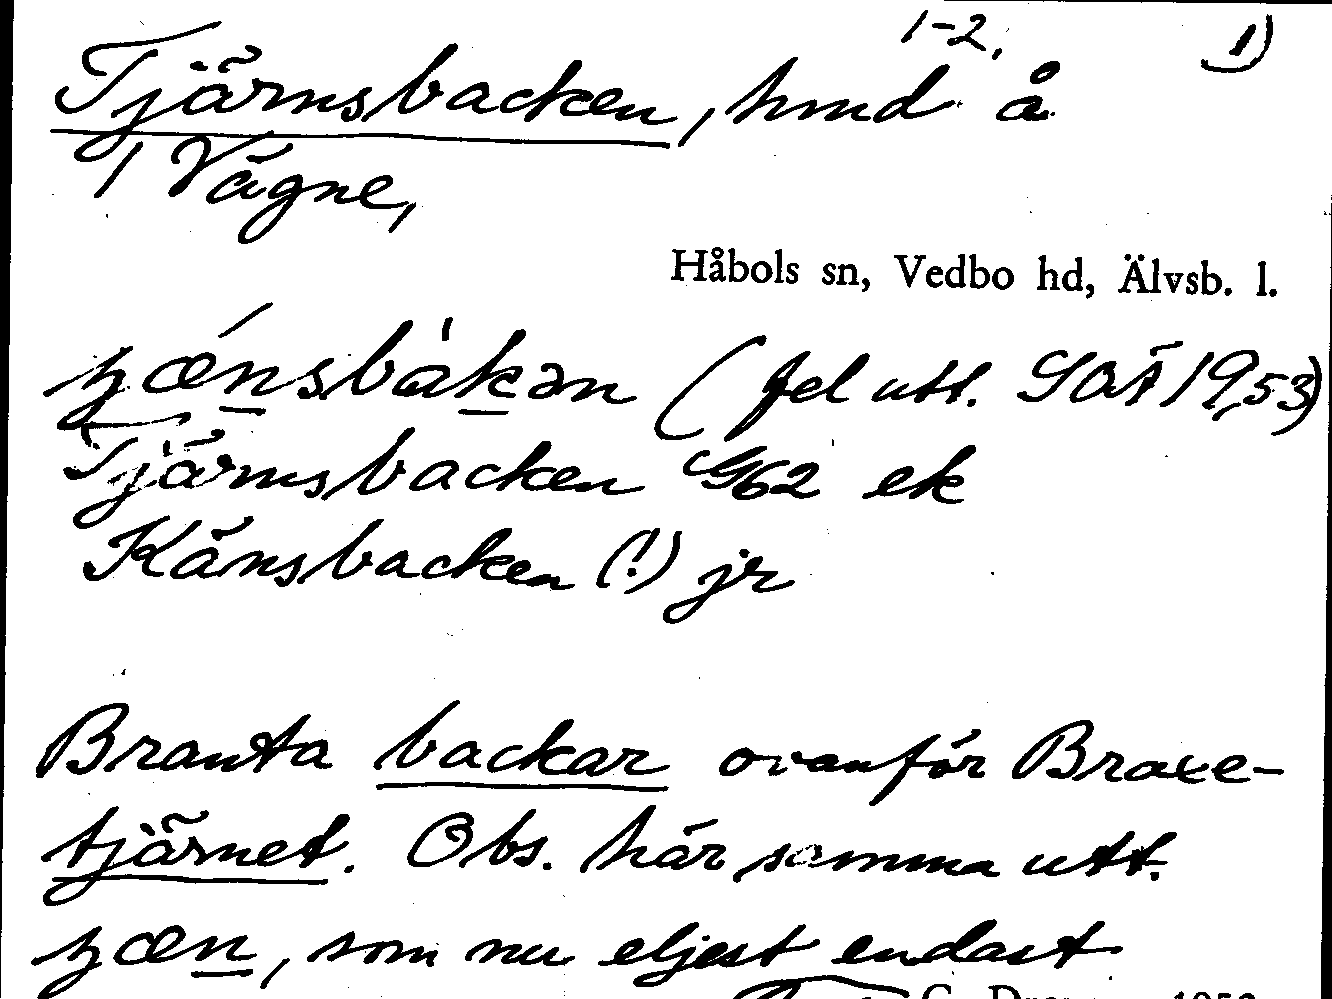 1-2. 1)
Tjärnsbacken, hmd å
1 Vägne,
Håbols sn, Vedbo hd, Älvsb. l.
(fel utt. SOÄ 19,53)
Tjärnsbacken G62 ek
Känsbacken (!) jr
Branta backar ovanför Braxe-
tjärnet. Obs. här samma utt.
som nu eljest endast